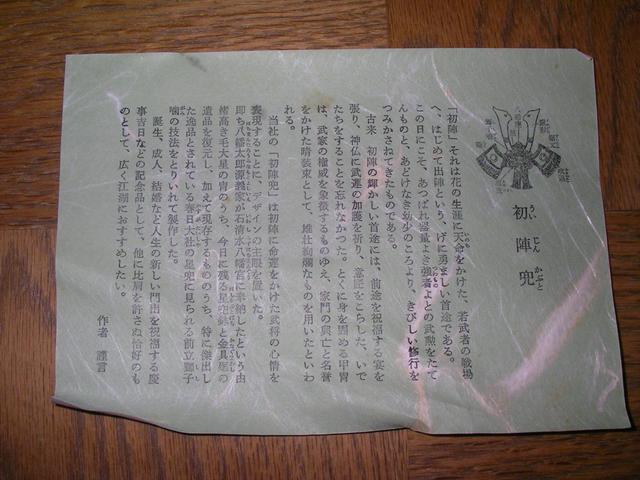 初陣兜
うい じん かぶと
「初陣」それは花の生涯に天命をかけた、若武者の戦場
へ、はじめて出陣という、げに勇ましい首途である。
この日にこそ、あつぱれ器量よき強者よとの武勲をたて
んものと、あどけなき幼少のころより、きびしい修行を
つみかさねてきたものである。
古来 初陣の輝かしい首途には、前途を祝福する宴を
張り、神仏に武運の加護を祈り、意匠をこらした、いで
たちをすることを忘れなかつた。とくに身を固める甲冑
は、武家の権威を象徴するものゆえ、家門の興亡と名誉
をかけた晴装束として、雄壮絢爛なものを用いたといわ
れる。
当社の「初陣兜」は初陣に命運をかけた武将の心情を
表現することに、デザインの主眼を置いた。
即ち八幡太郎源義家が石清水八幡宮に奉納したという由
緒高き毛大星の冑のうち、今日に残る星兜鉢と金具廻の
遺品を復元し、加えて現存するもののうち、特に傑出し
た逸品とされている春日大社の星兜に見られる前立獅子
噛の技法をとりいれて製作した。
誕生、成人、結婚など人生の新しい門出を祝福する慶
事吉日などの記念品として、他に比肩を許さぬ恰好のも
のとして、広く江湖におすすめしたい。
作者 謹言